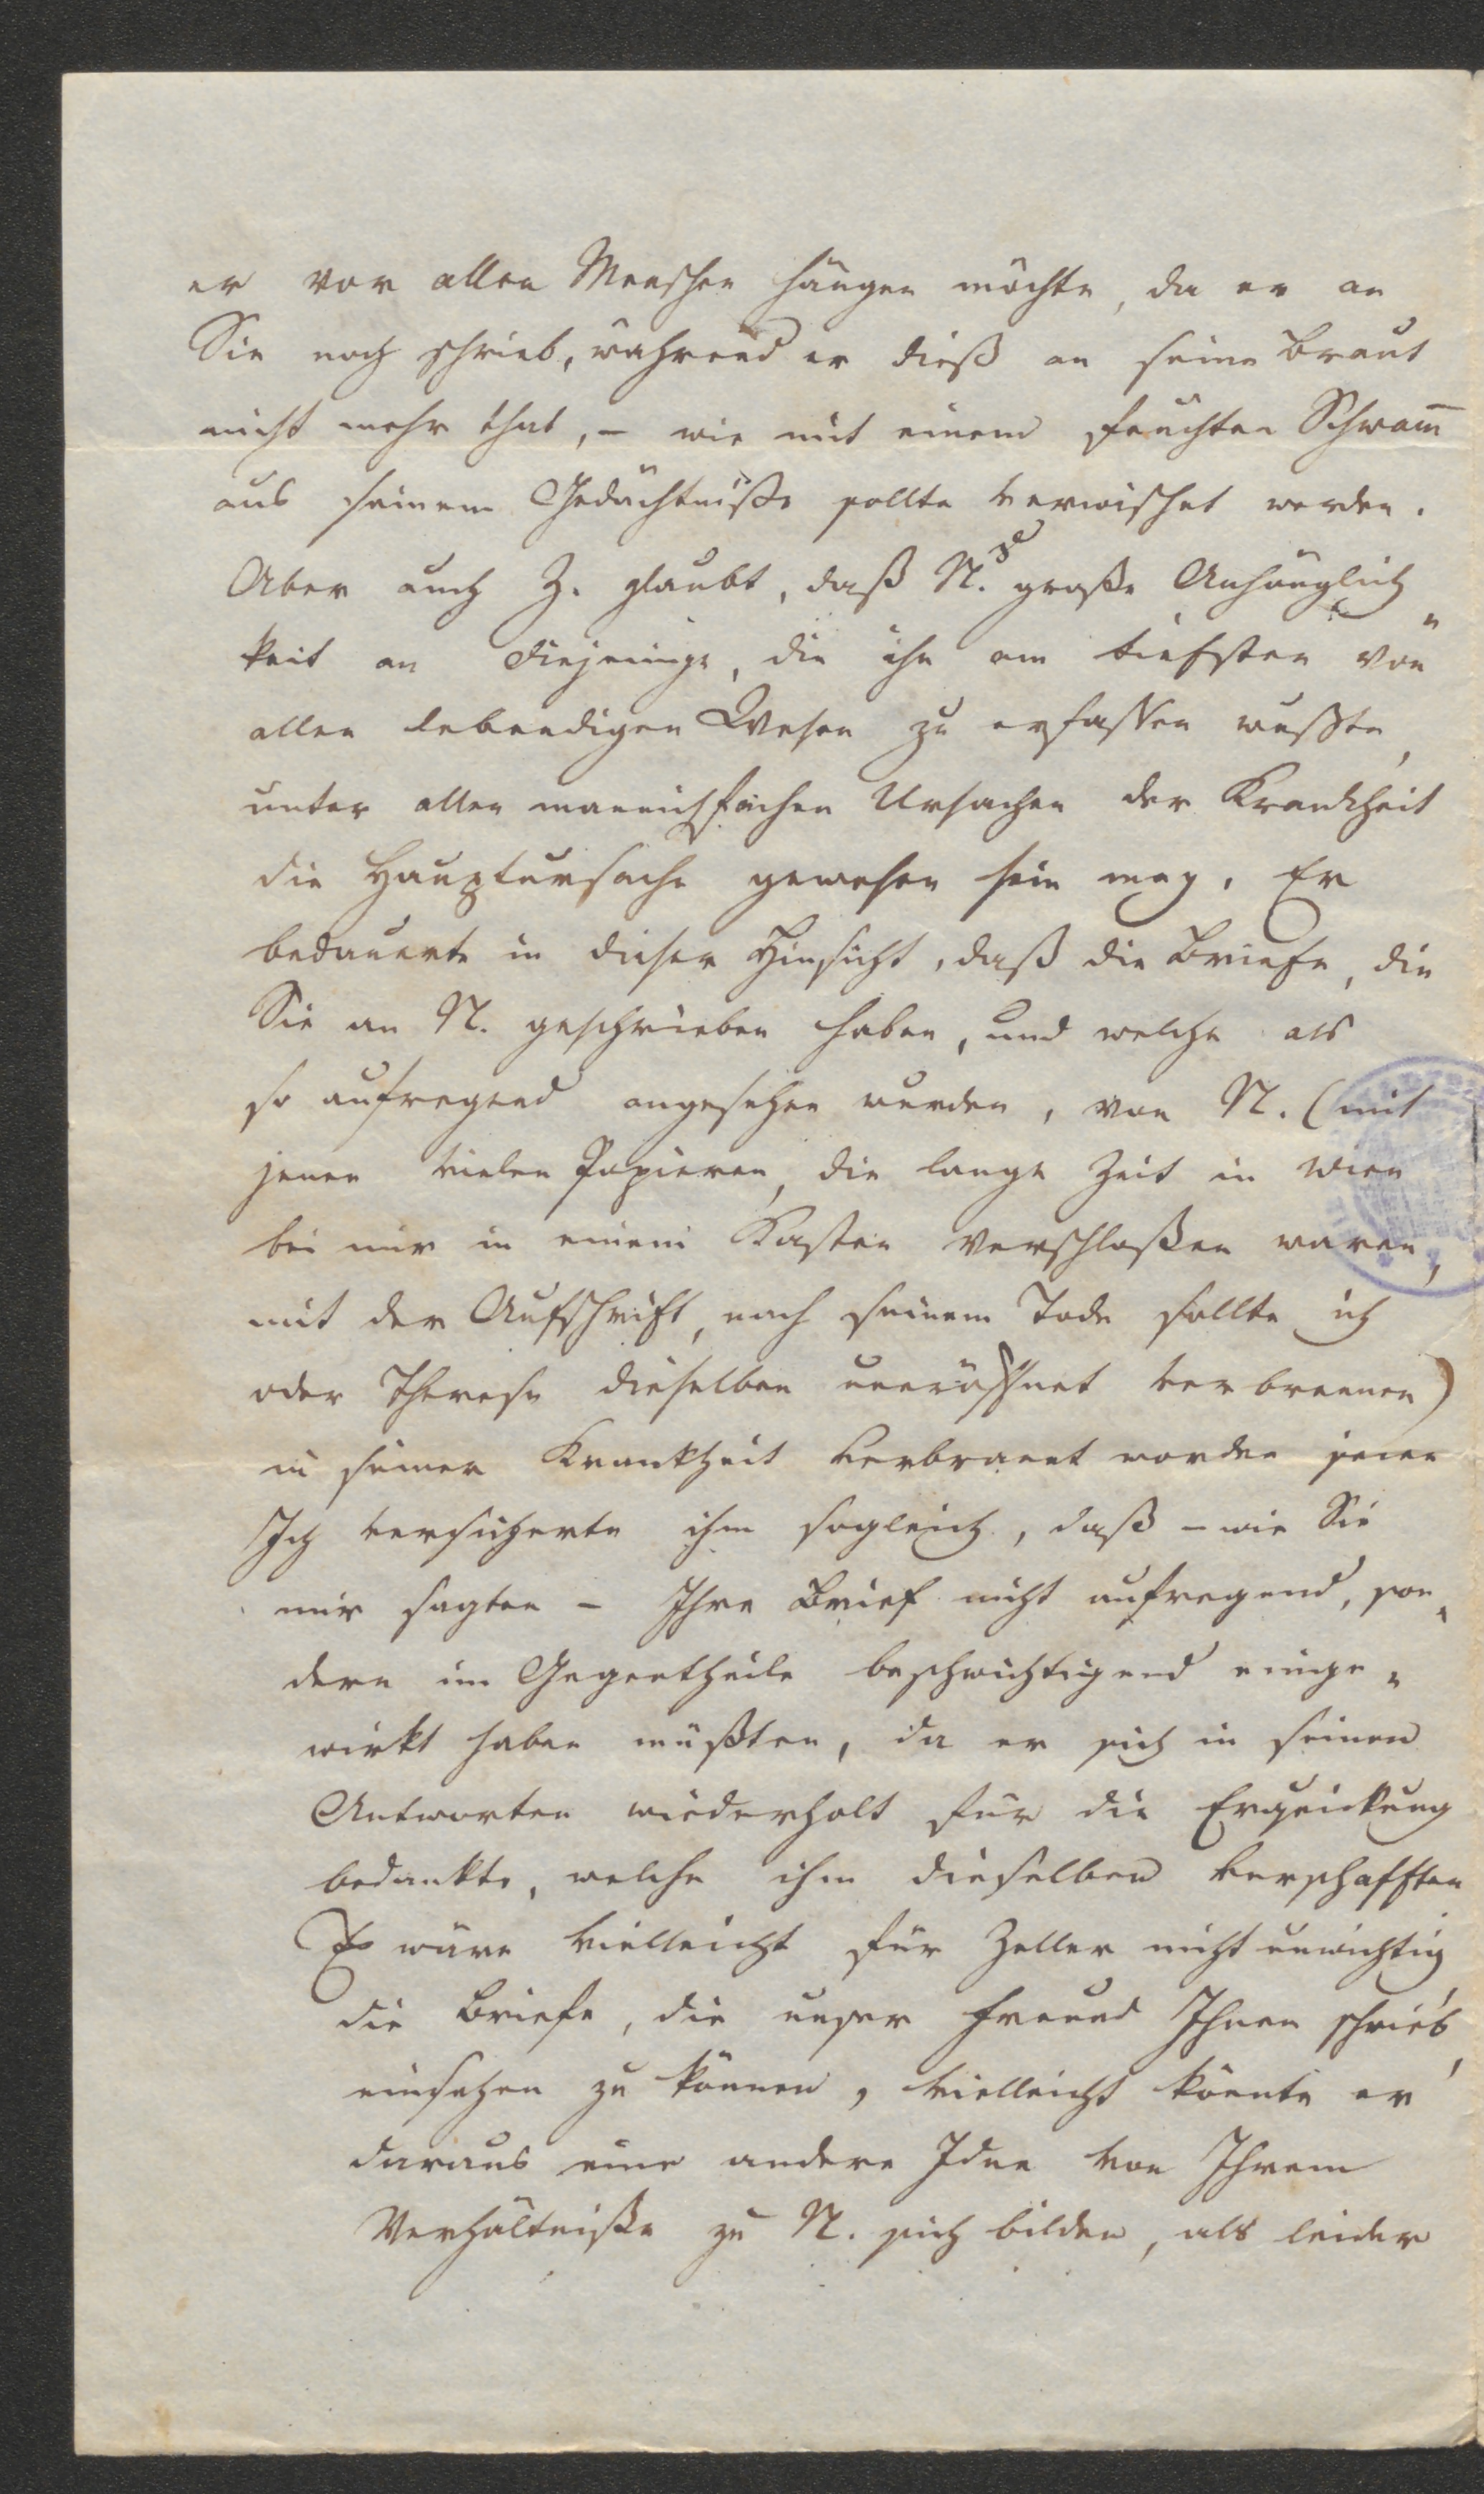 er vor allen Menschen hängen möchte, da er an
Sie noch schrieb, während er dieß an seine Braut
nicht mehr that, – wie mit einem feuchten Schwam̅
aus seinem Gedächtniße sollte verwischet werden.
Aber auch Z. glaubt, daß N.s große Anhänglich„
keit an diejenige, die ihn am tiefsten von
allen lebendigen Wesen zu erfassen wußte,
unter allen mannichfachen Ursachen der Krankheit
die Hauptursache gewesen sein mag. Er
bedauerte in dieser Hinsicht, daß die Briefe, die
Sie an N. geschrieben haben, und welche als
so aufregend angesehen wurden, von N. (mit
jenen vielen Papieren, die lange Zeit in Wien
bei mir in einem Kasten verschloßen waren,
mit der Aufschrift, nach seinem Tode sollte ich
oder Therese dieselben uneröffnet verbrennen)
in seiner Krankheit verbrannt worden seien
Ich versicherte ihm sogleich, daß – wie Sie
mir sagten – Ihre Brief nicht aufregend, son„
dern im Gegentheile beschwichtigend einge„
wirkt haben müßten, da er sich in seinen
Antworten wiederholt für die Erquickung
bedankte, welche ihm dieselben verschafften
Es wäre vielleicht für Zeller nicht unwichtig
die Briefe, die unser Freund Ihnen schrieb,
einsehen zu können, vielleicht könnte er
daraus eine andere Idee von Ihrem
Verhältniße zu N. sich bilden, als leider